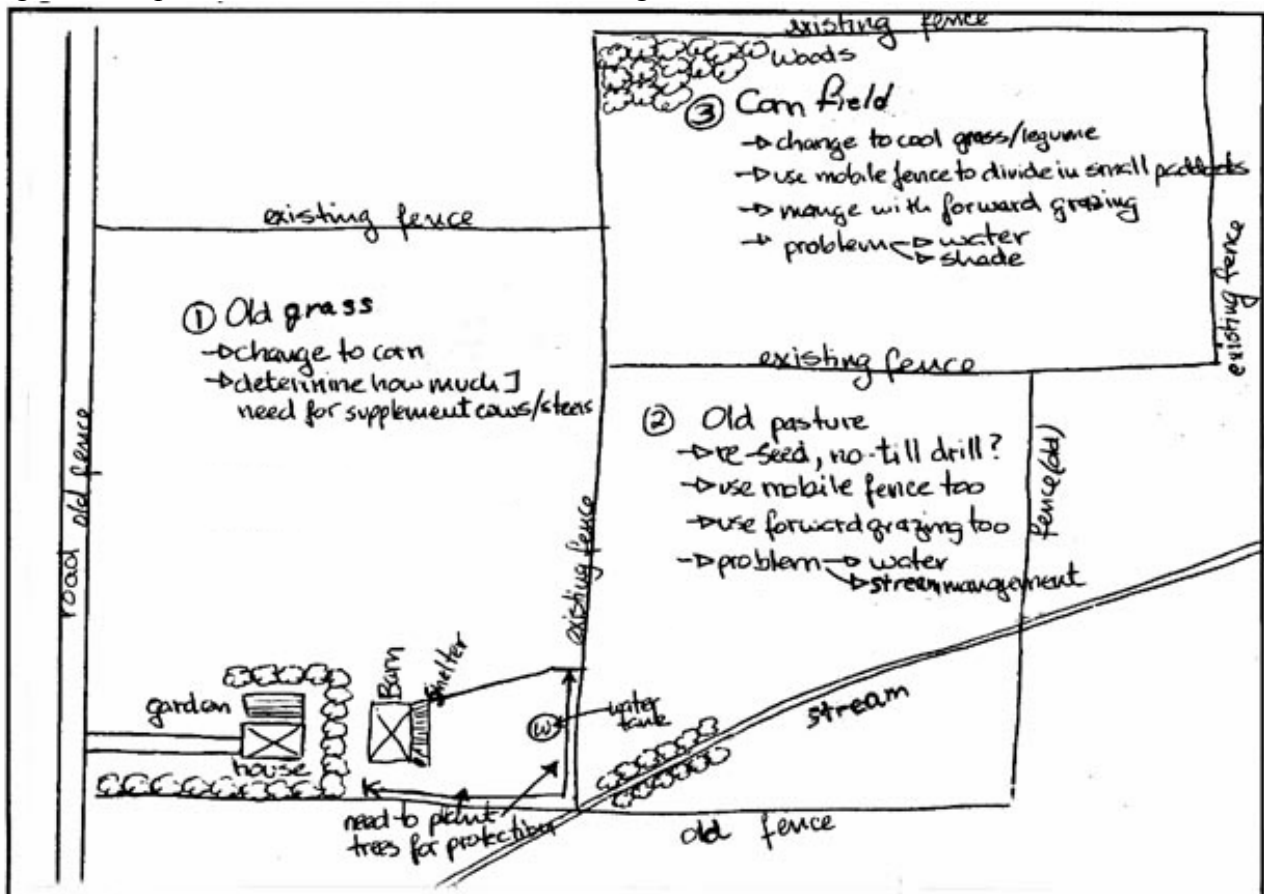 existing fence
woods
③ Corn field
→ change to cool grass/legume
→ use mobile fence to divide in small paddocks
→ mange with forward grazing
→ problem → water
→ shade
existing fence
existing fence
① Old grass
→ change to corn
→ determine how much I
need for supplement cows/steers
existing fence
② Old pasture
→ re-seed, no-till drill?
→ use mobile fence too
→ use forward grazing too
→ problem → water
→ stream mangement
fence (old)
existing fence
road
old fence
garden
house
Barn
shelter
W
water
tank
stream
need to plant
trees for protection
old fence